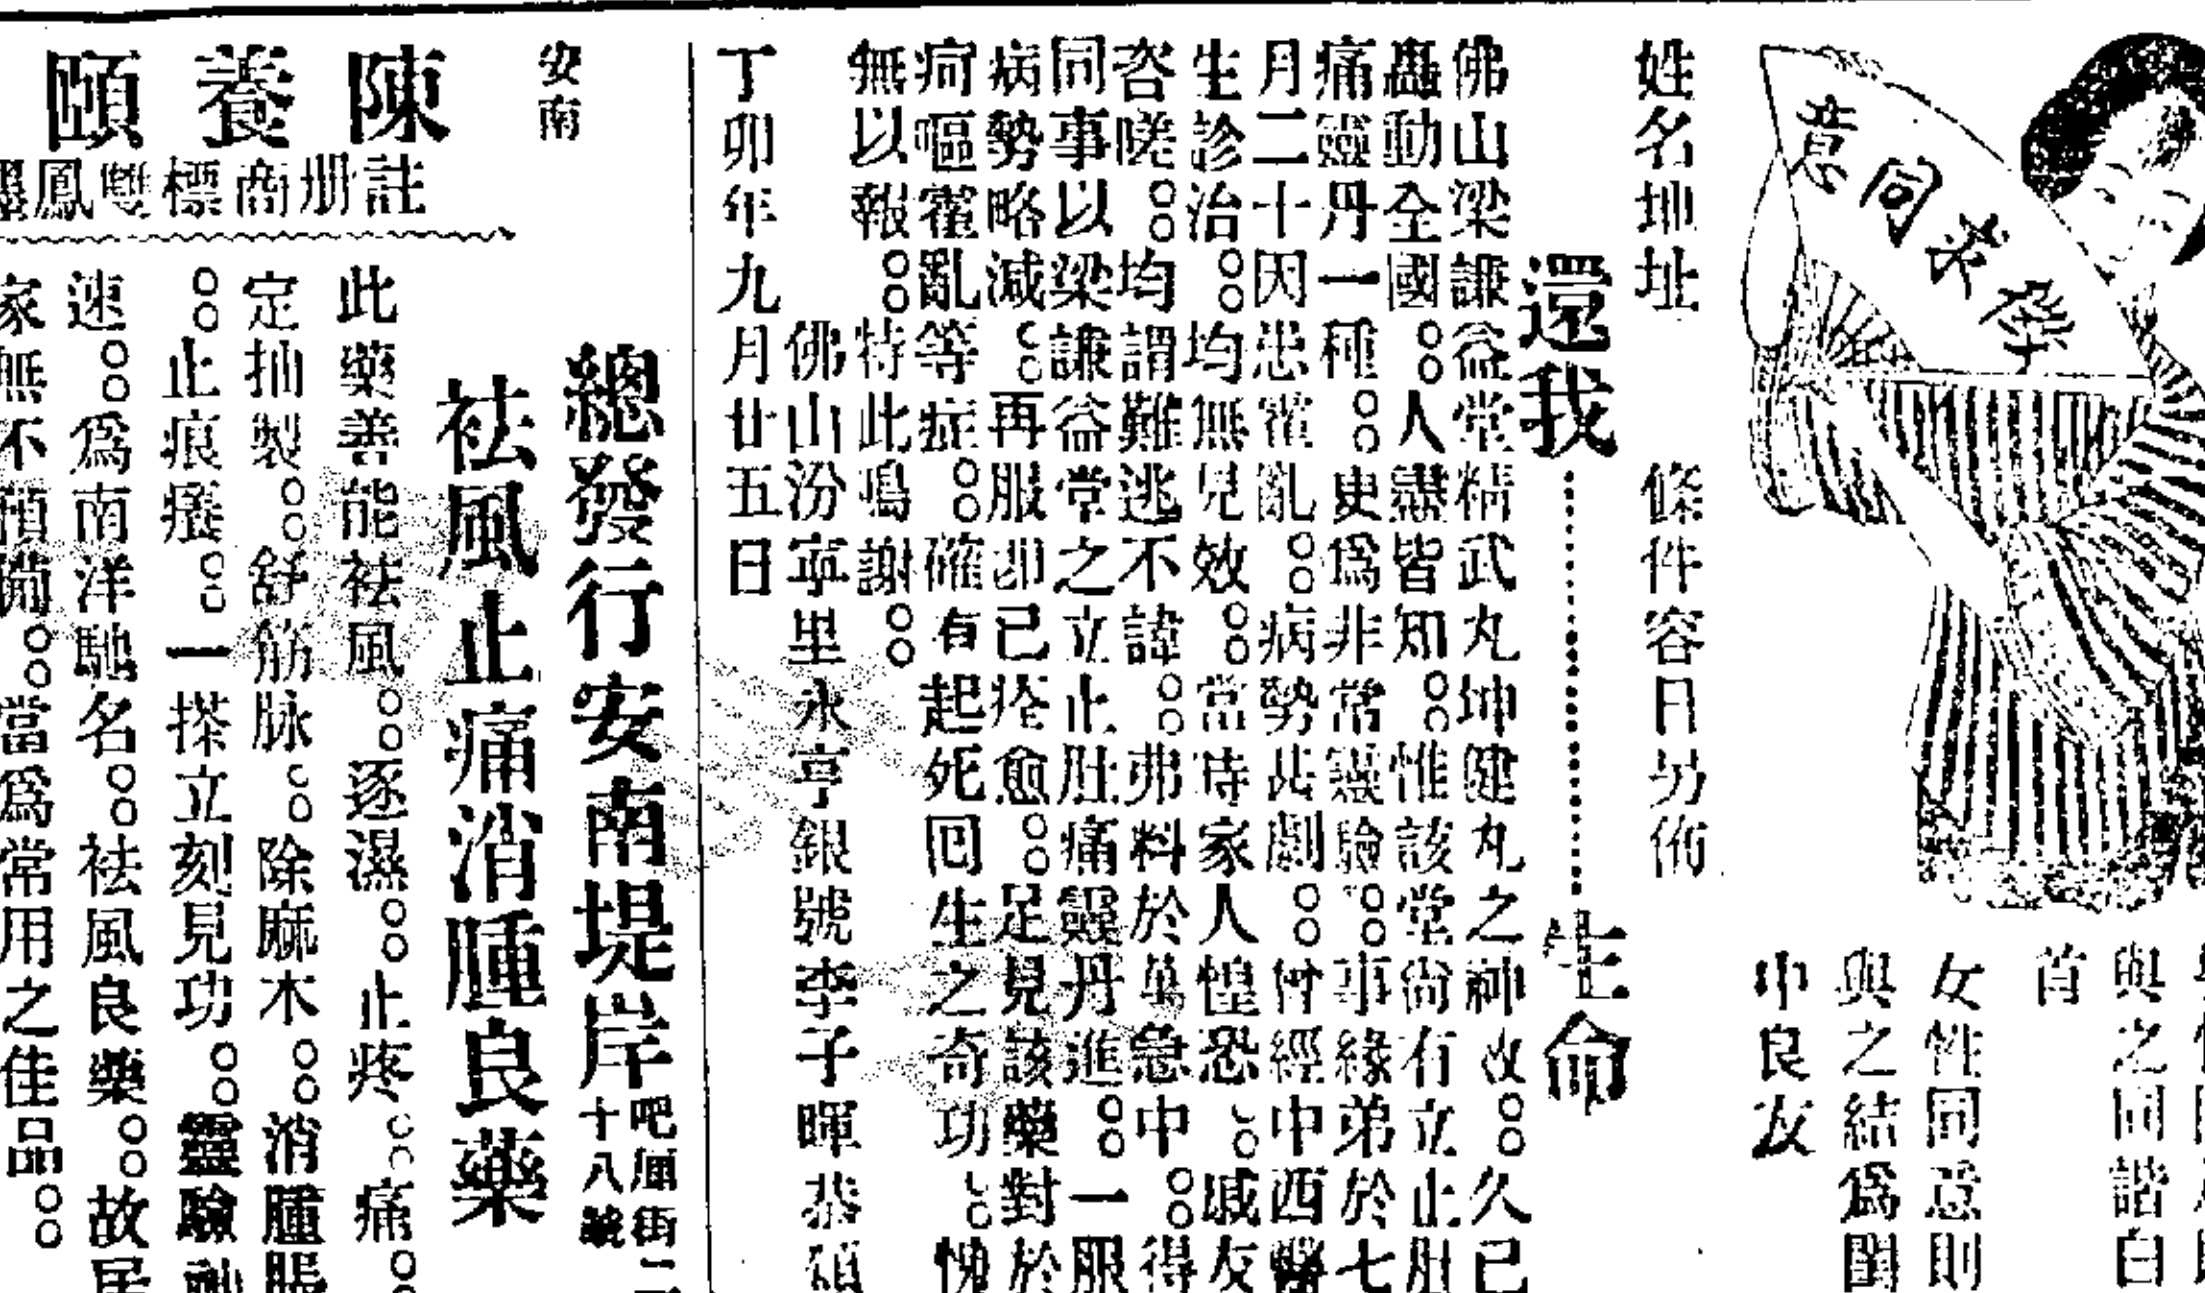 意同求學
與之同諧白
首
女性同意則
與之結爲閨
中良友
姓名地址
條件容日另佈
還我………生命
佛山梁謙益堂精武丸坤健丸之神效。。久已
轟動全國。。人盡皆知。。惟該堂尙有立止肚
痛靈丹一種。。更爲非常靈驗。。事緣弟於七
月二十因患霍亂。。病勢甚劇。。曾經中西醫
生診治。。均無見效。。當時家人惶恐。。戚友
咨嗟。。均謂難逃不諱。。弗料於萬急中。。得
同事以梁謙益堂之立止肚痛靈丹進。。一服
病勢略減。。再服即已痊愈。。足見該藥對於
疴嘔霍亂等症。。確有起死回生之奇功。。愧
無以報。。特此鳴謝。。
佛山汾寧里永亨銀號李子暉恭頌
丁卯年九月廿五日
安南
陳養頤
註册商標雙鳳
總發行安南堤岸
十八號
袪風止痛消腫良藥
此藥善能袪風。。逐濕。。止疼。。痛。。
定抽製。。舒筋脉。。除麻木。。消腫脹
。。止痕癢。。一搽立刻見功。。靈驗神
速。。爲南洋馳名。。袪風良藥。。故居
家無不預備。。當爲常用之佳品。。